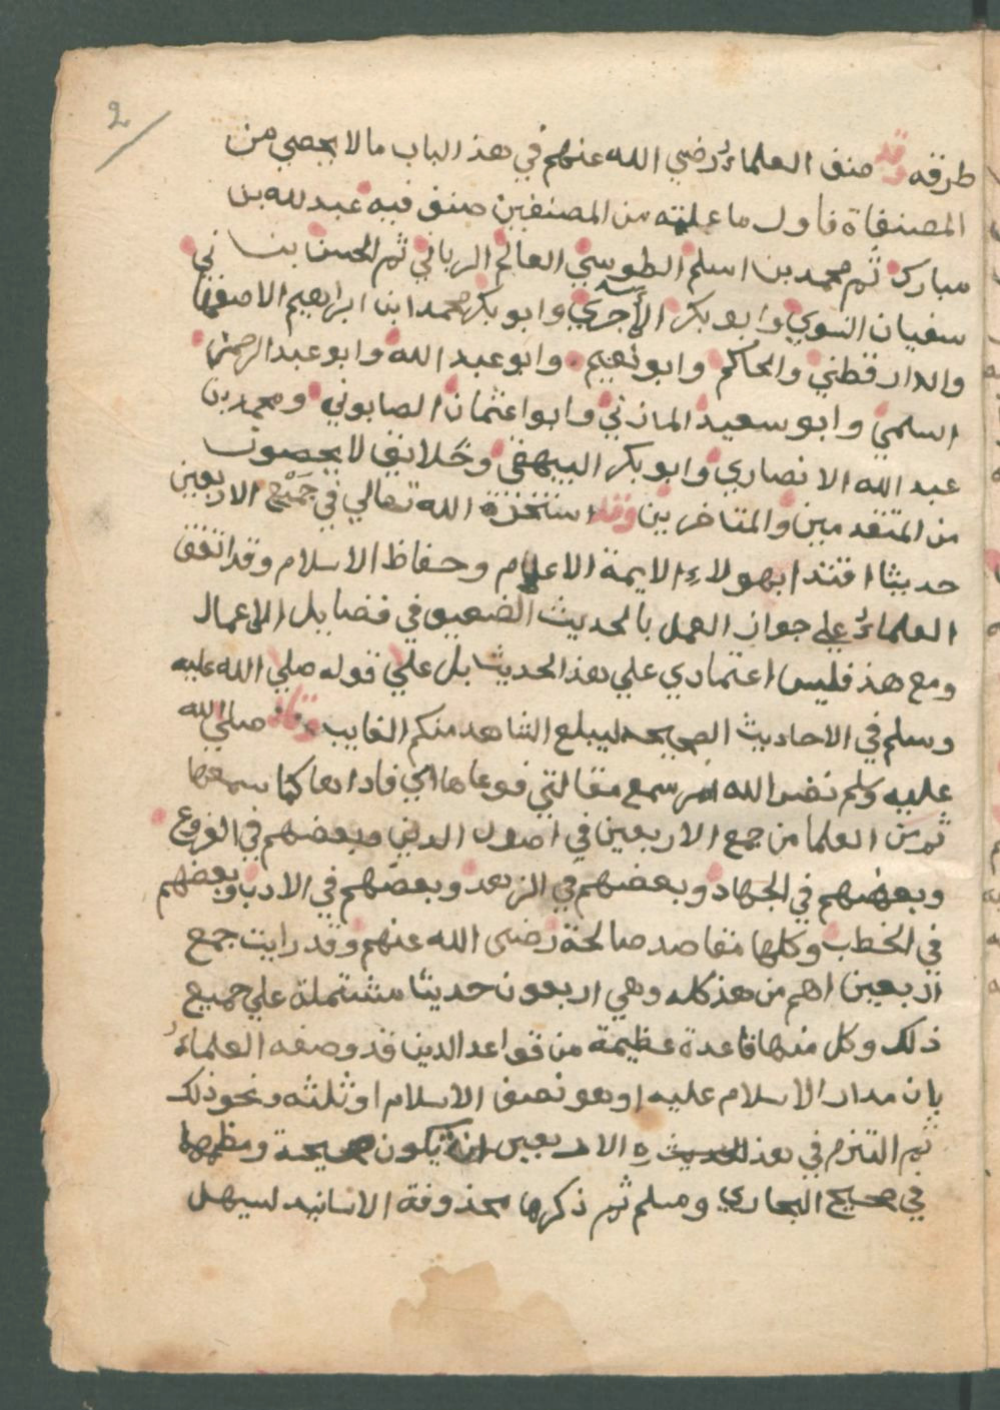 2
طرقه وقد صنف العلماءُ رضي الله عنهم في هذ الباب مالا يحصي من
المصنفاة فاول ما علمته من المصنفين صنف فيه عبد لله بن
مبارك ثم محمد بن اسلم الطوسي العالم الرباني ثم الحسن بن
سفيان النسوي وابو بكر الأجري وابو بكر محمد ابن ابراهيم الاصفها ني
والدارقطني والحاكم وابو نعيم وابو عبد الله وابو عبد الرحمن
السلمي وابو سعيد الماذني وابوا عثمان الصابوني ومحمد بن
عبد الله الانصاري وابو بكر البيهقي وخلائق لا يحصون
من المتقدمين والمتاخرين وقد استخرة الله تعالي في جَمْع الاربعين
حديثا اقتدا بهولاء الايمة الاعلام وحفاظ الاسلام وقد اتفق
العلماءُ علي جواز العمل بالحديث الضعيف في فضايل الاعمال
ومع هذ فليس اعتمادي علي هذ الحديث بل علي قوله صلي الله عليه
وسلم في الاحاديث الصحيحه ليبلع الشاهد منكم الغايب وقوله صلي الله
عليه وسلم نضر الله امر سمع مقالتي فوعاها فاداها كما سمعها
ثم من العلما من جمع الاربعين في اصول الدين وبعضهم في الفروع
وبعضهم في الجهاد وبعضهم في الزهد وبعضهم في الادب وبعضهم
في الخطب وكلها مقاصد صالحة رضي الله عنهم وقد رايت جمع
اربعين اهم من هذ كله وهي اربعون حديثا مشتملة علي جميع
ذلك وكل منها قاعدة عظيمة من قواعد الدين قد وصفه العلماءُ
بان مدار الاسلام عليه او هو نصف الاسلام او ثلثه ونحو ذلك
ثم التزم في هذ ه الاربعين ان تكون صحيحة ومعظمها
في صحيح البخاري ومسلم ثم ذكرها محذوفة الاسانيد ليسهل